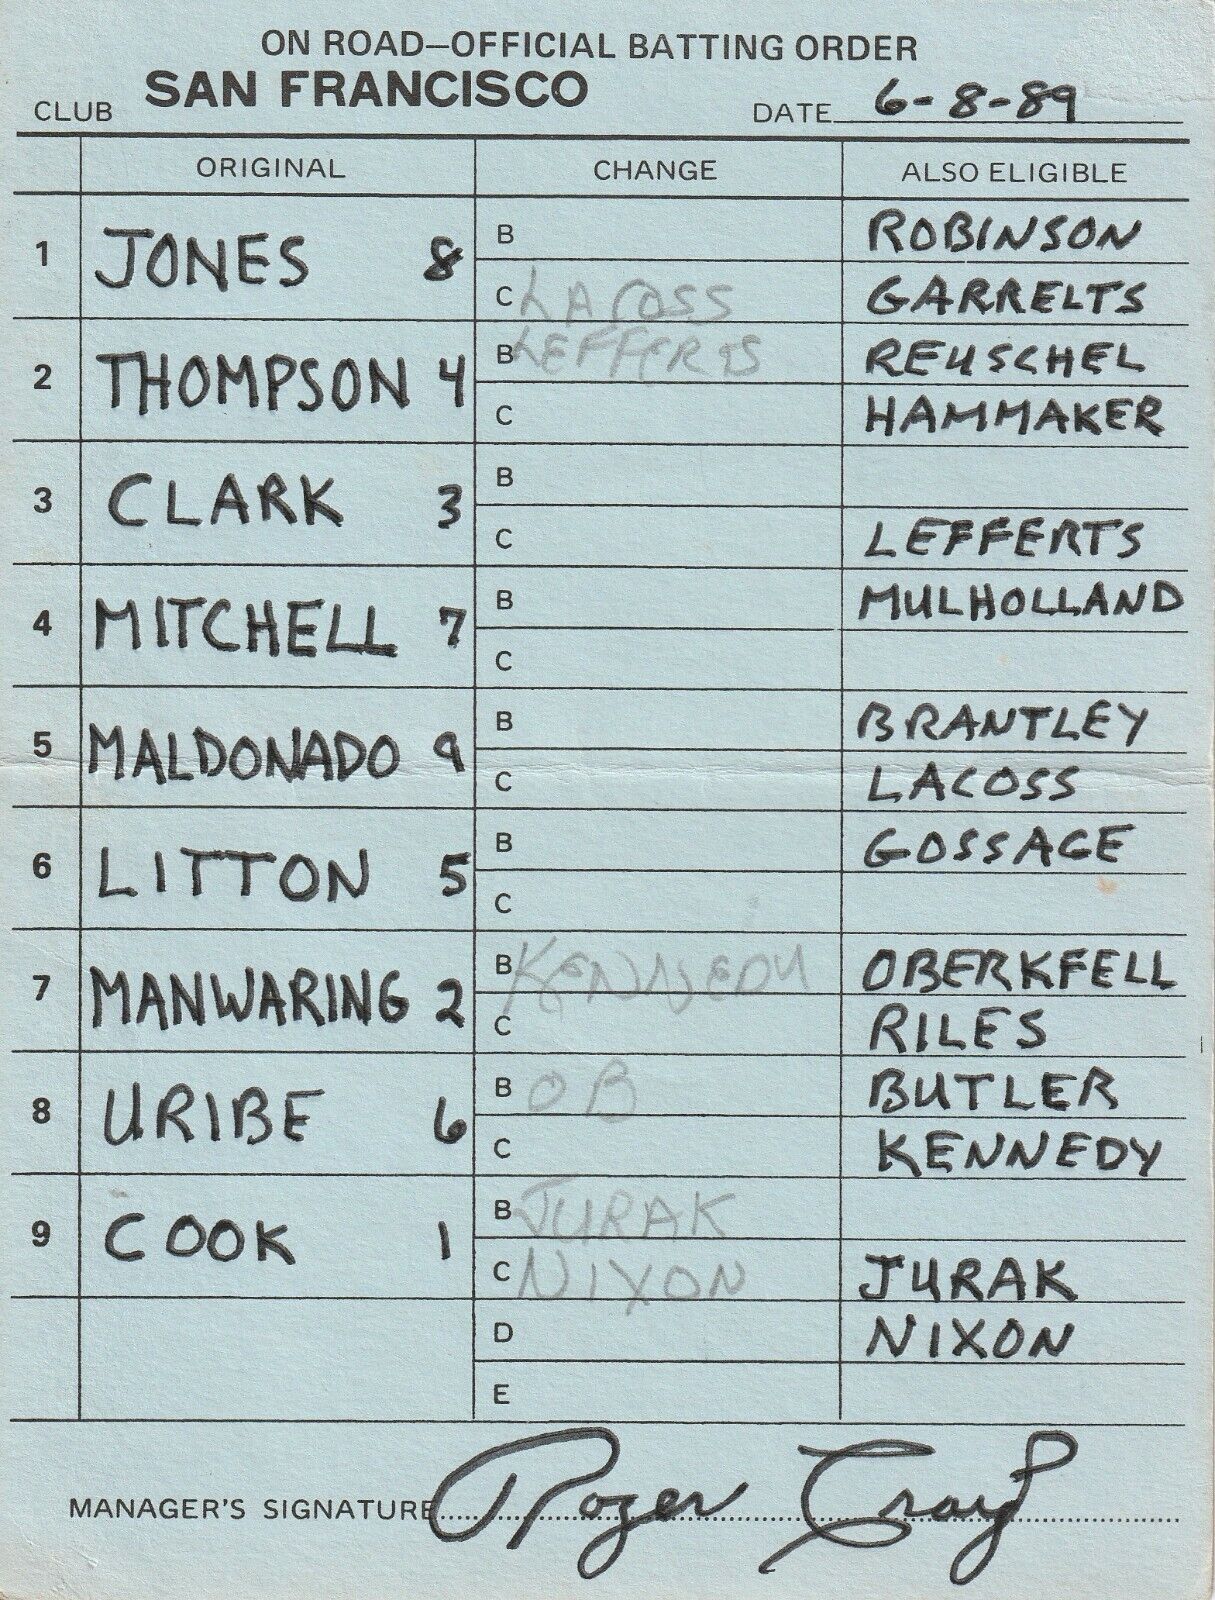 ON ROAD–OFFICIAL BATTING ORDER
CLUB SAN FRANCISCO DATE 6-8-89
ORIGINAL CHANGE ALSO ELIGIBLE
1 JONES 8 B ROBINSON
C LACOSS GARRELTS
2 THOMPSON 4 B LEFFERTS REUSCHEL
C HAMMAKER
3 CLARK 3 B
C LEFFERTS
4 MITCHELL 7 B MULHOLLAND
C
5 MALDONADO 9 B BRANTLEY
C LACOSS
6 LITTON 5 B GOSSAGE
C
7 MANWARING 2 B KENNEDY OBERKFELL
C RILES
8 URIBE 6 B OB BUTLER
C KENNEDY
9 COOK 1 B JURAK
C NIXON JURAK
D NIXON
E
MANAGER'S SIGNATURE Roger Craig